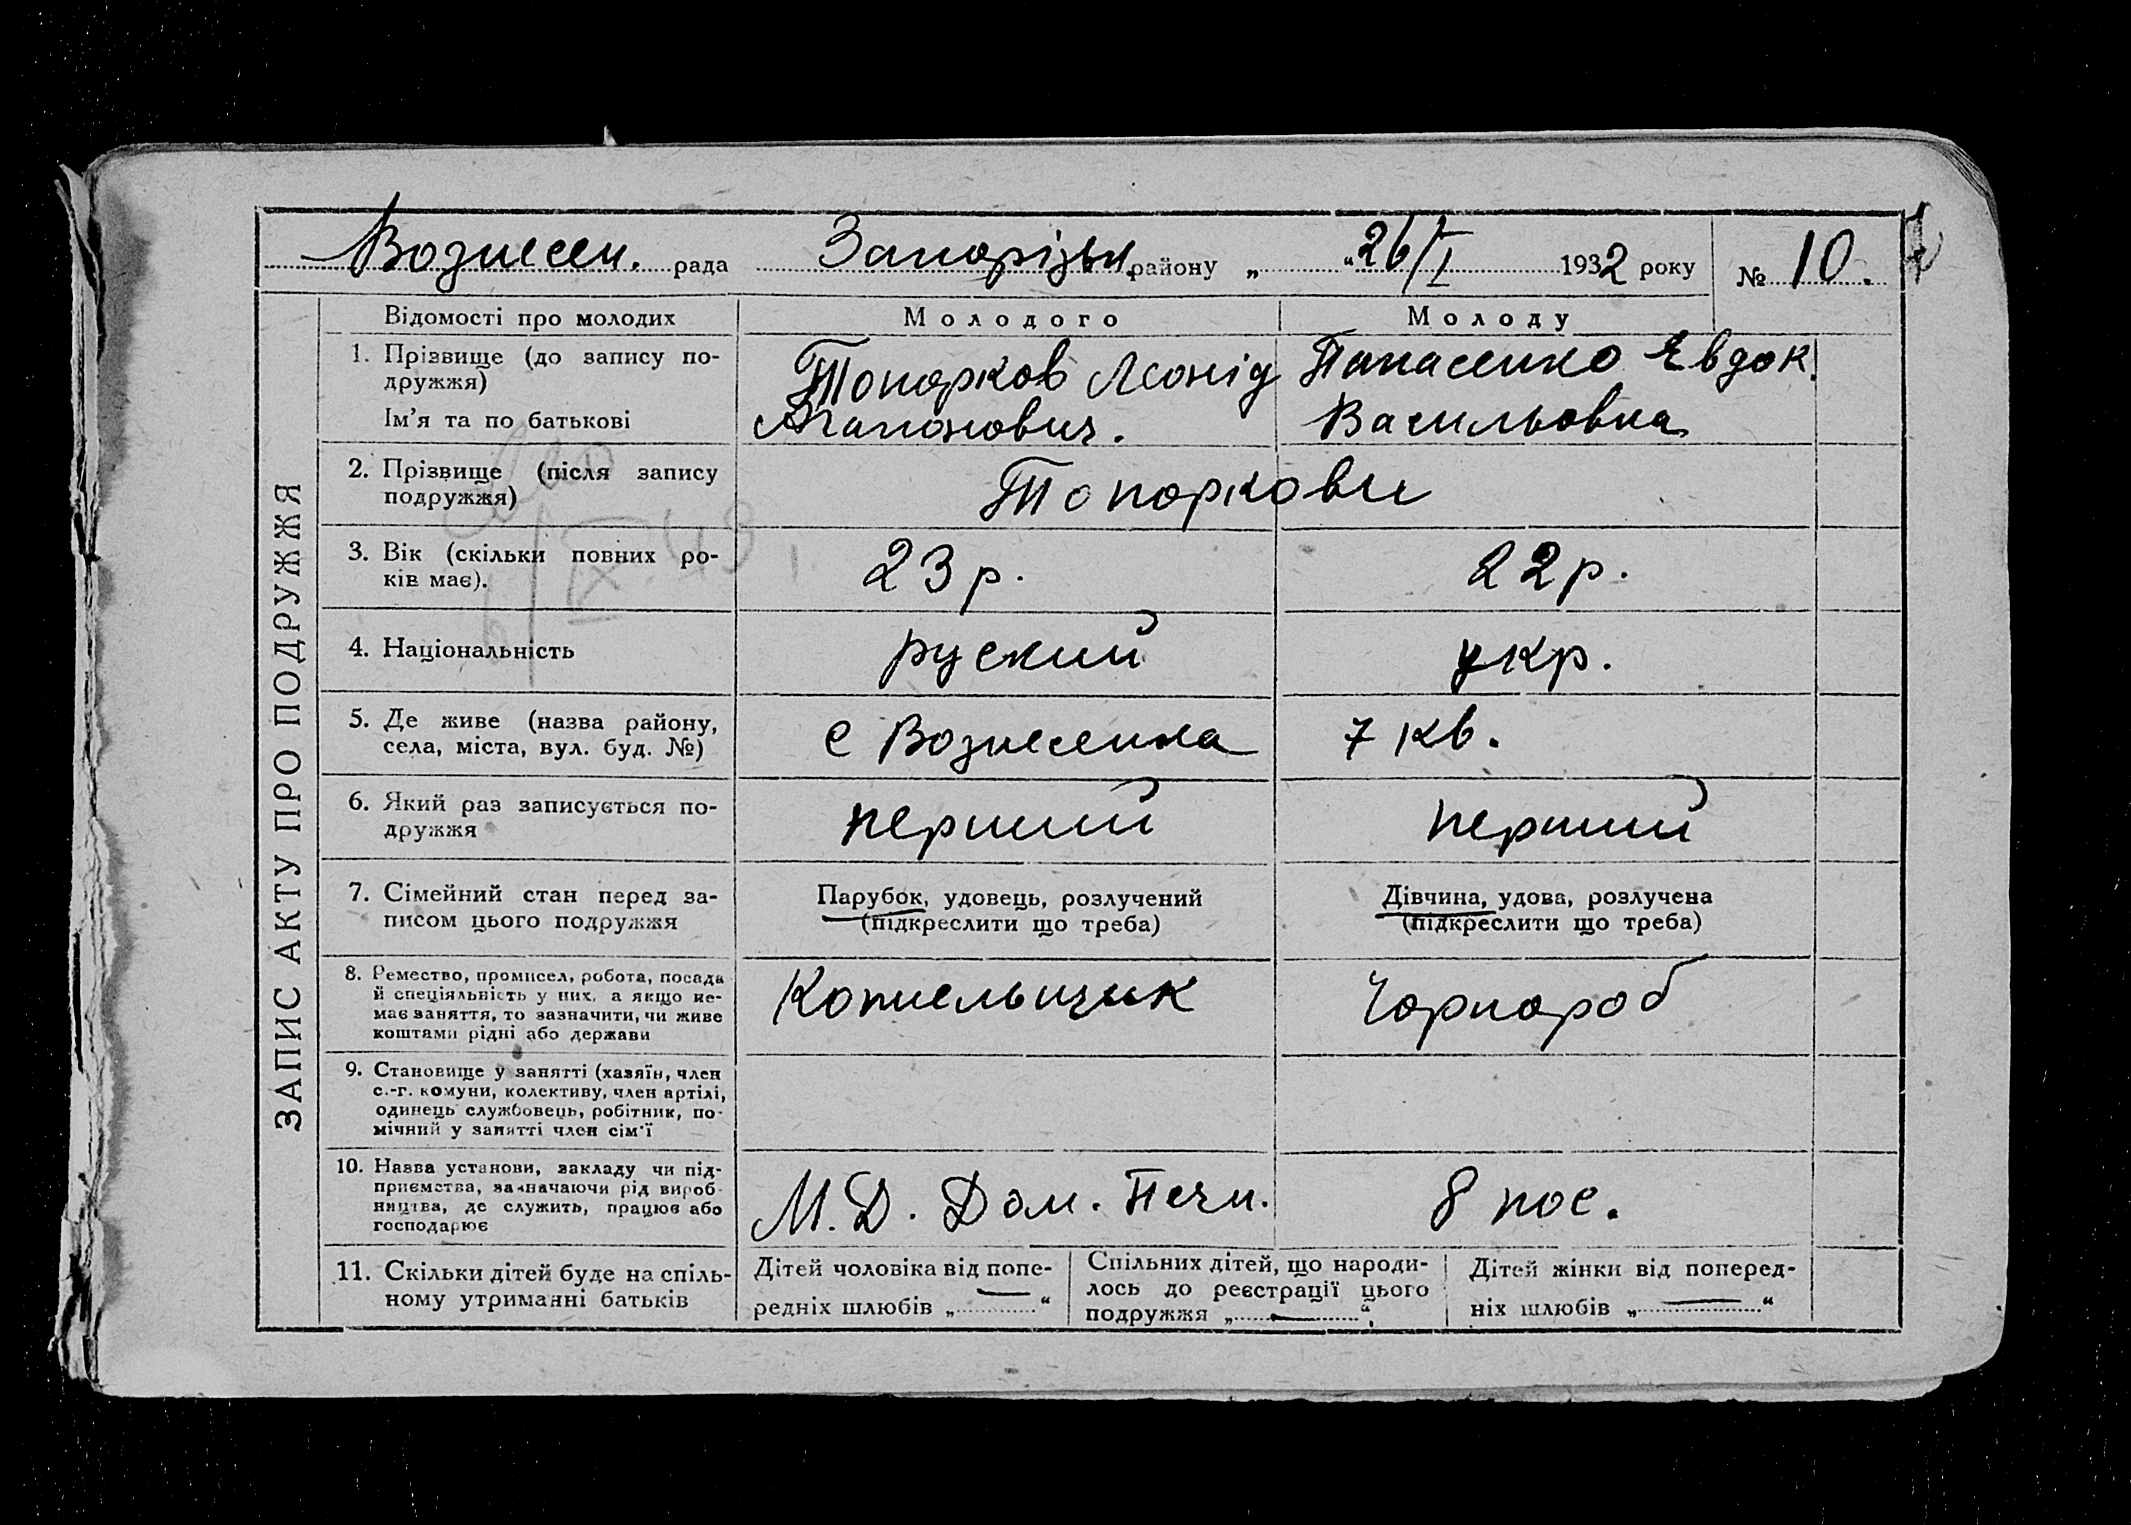 Вознесен. рада Запорізьк. району „ “ 26/I 1932 року № 10.
ЗАПИС АКТУ ПРО ПОДРУЖЖЯ
Відомості про молодих Молодого Молоду
1. Прізвище (до запису по- Топорков Леонід Панасенко Евдок.
дружжя)
Ім’я та по батькові Агапонович. Васильовна
2. Прізвище (після запису Топоркови
подружжя)
3. Вік (скільки повних ро- 23 р. 22 р.
ків має).
4. Національність руский укр.
5. Де живе (назва району, с Вознесенка 7 кв.
села, міста, вул. буд. №)
6. Який раз записується по- перший перший
дружжя
7. Сімейний стан перед за- Парубок, удовець, розлучений Дівчина, удова, розлучена
писом цього подружжя (підкреслити що треба) (підкреслити що треба)
8. Ремество, промисел, робота, посада Чорнороб
й спеціяльність у них, а якщо не-
має заняття, то зазначити, чи живе
коштами рідні або держави
9. Становище у занятті (хазяїн, член
с.-г. комуни, колективу, член артілі,
одинець службовець, робітник, по-
мічний у занятті член сім’ї
10. Назва установи, закладу чи під- М. Д. Дом. Печи. 8 пос.
приємства, зазначаючи рід вироб-
ництва, де служить, працює або
господарює
11. Скільки дітей буде на спіль- Дітей чоловіка від попе- Спільних дітей, що народи- Дітей жінки від поперед-
ному утриманні батьків редніх шлюбів „ — “ лось до реєстрації цього ніх шлюбів „ — “
подружжя „ — “